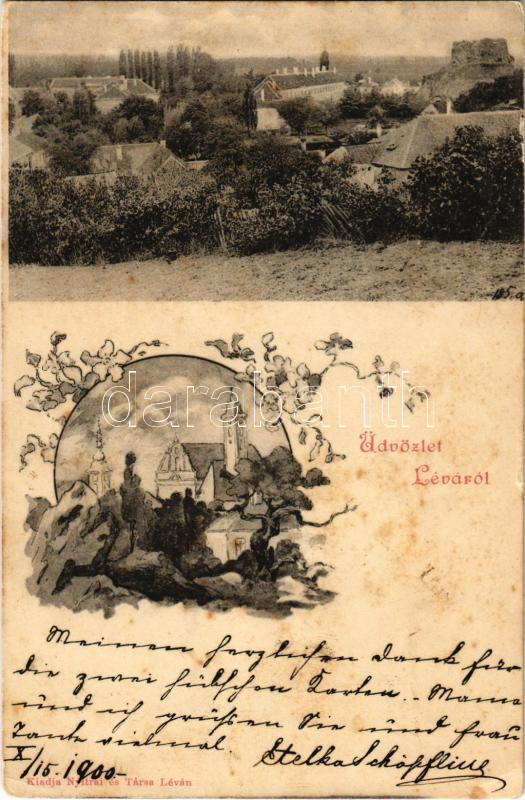 darabanth.com
Üdvözlet
Léváról
Meinen herzlichen Dank für
die zwei hübschen Karten. - Mama
und ich grüßen Sie und frau
Tante vielmal.
X/15. 1900.-
Kiadja Nyitrai és Társa Léván